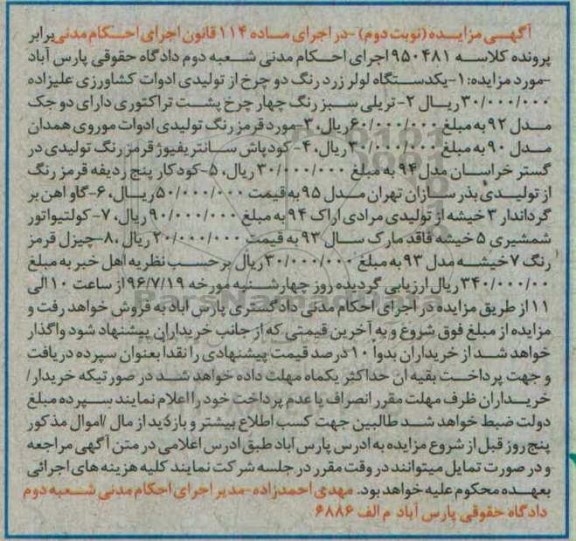 آگهی مزایده (نوبت دوم) -در اجرای ماده ۱۱۴ قانون اجرای احکام مدنی برابر
پرونده کلاسه ۹۵۰۴۸۱ اجرای احکام مدنی شعبه دوم دادگاه حقوقی پارس آباد
-مورد مزایده: ۱-یکدستگاه لولر زرد رنگ دو چرخ از تولیدی ادوات کشاورزی علیزاده
۳۰/۰۰۰/۰۰۰ ریال ۲- تریلی سبز رنگ چهار چرخ پشت تراکتوری دارای دو جک
مدل ۹۲ به مبلغ ۶۰/۰۰۰/۰۰۰ ریال، ۳-مورد قرمز رنگ تولیدی ادوات موروی همدان
مدل ۹۰ به مبلغ ۳۰/۰۰۰/۰۰۰ ریال، ۴- کودپاش سانتریفیوژ قرمز رنگ تولیدی در
گستر خراسان مدل ۹۴ به مبلغ ۳۰/۰۰۰/۰۰۰ ریال، ۵-کود کار پنج ردیفه قرمز رنگ
از تولیدی بذر سازان تهران مدل ۹۵ به قیمت ۵۰/۰۰۰/۰۰۰ ریال، ۶-گاو اهن بر
گرداندار ۳ خیشه از تولیدی مرادی اراک ۹۴ به مبلغ ۹۰/۰۰۰/۰۰۰ ریال، ۷- کولتیواتور
شمشیری ۵ خیشه فاقد مارک سال ۹۳ به قیمت ۲۰/۰۰۰/۰۰۰ ریال، ۸-چیزل قرمز
رنگ ۷ خیشه مدل ۹۳ به مبلغ ۳۰/۰۰۰/۰۰۰ ریال بر حسب نظریه اهل خبر به مبلغ
۳۴۰/۰۰۰/۰۰ ریال ارزیابی گردیده روز چهارشنبه مورخه ۹۶/۷/۱۹ از ساعت ۱۰ الی
۱۱ از طریق مزایده در اجرای احکام مدنی دادگستری پارس آباد به فروش خواهد رفت و
مزایده از مبلغ فوق شروع و به آخرین قیمتی که از جانب خریداران پیشنهاد شود واگذار
خواهد شد از خریداران بدوا ۱۰ درصد قیمت پیشنهادی را نقدا بعنوان سپرده دریافت
و جهت پرداخت بقیه ان حداکثر یکماه مهلت داده خواهد شد در صورتیکه خریدار/
خریداران ظرف مهلت مقرر انصراف یا عدم پرداخت خود را اعلام نمایند سپرده مبلغ
دولت ضبط خواهد شد طالبین جهت کسب اطلاع بیشتر و بازدید از مال /اموال مذکور
پنج روز قبل از شروع مزایده به ادرس پارس آباد طبق ادرس اعلامی در متن آگهی مراجعه
و در صورت تمایل میتوانند در وقت مقرر در جلسه شرکت نمایند کلیه هزینه های اجرائی
بعهده محکوم علیه خواهد بود. مهدی احمدزاده -مدیر اجرای احکام مدنی شعبه دوم
دادگاه حقوقی پارس آباد م الف ۶۸۸۶